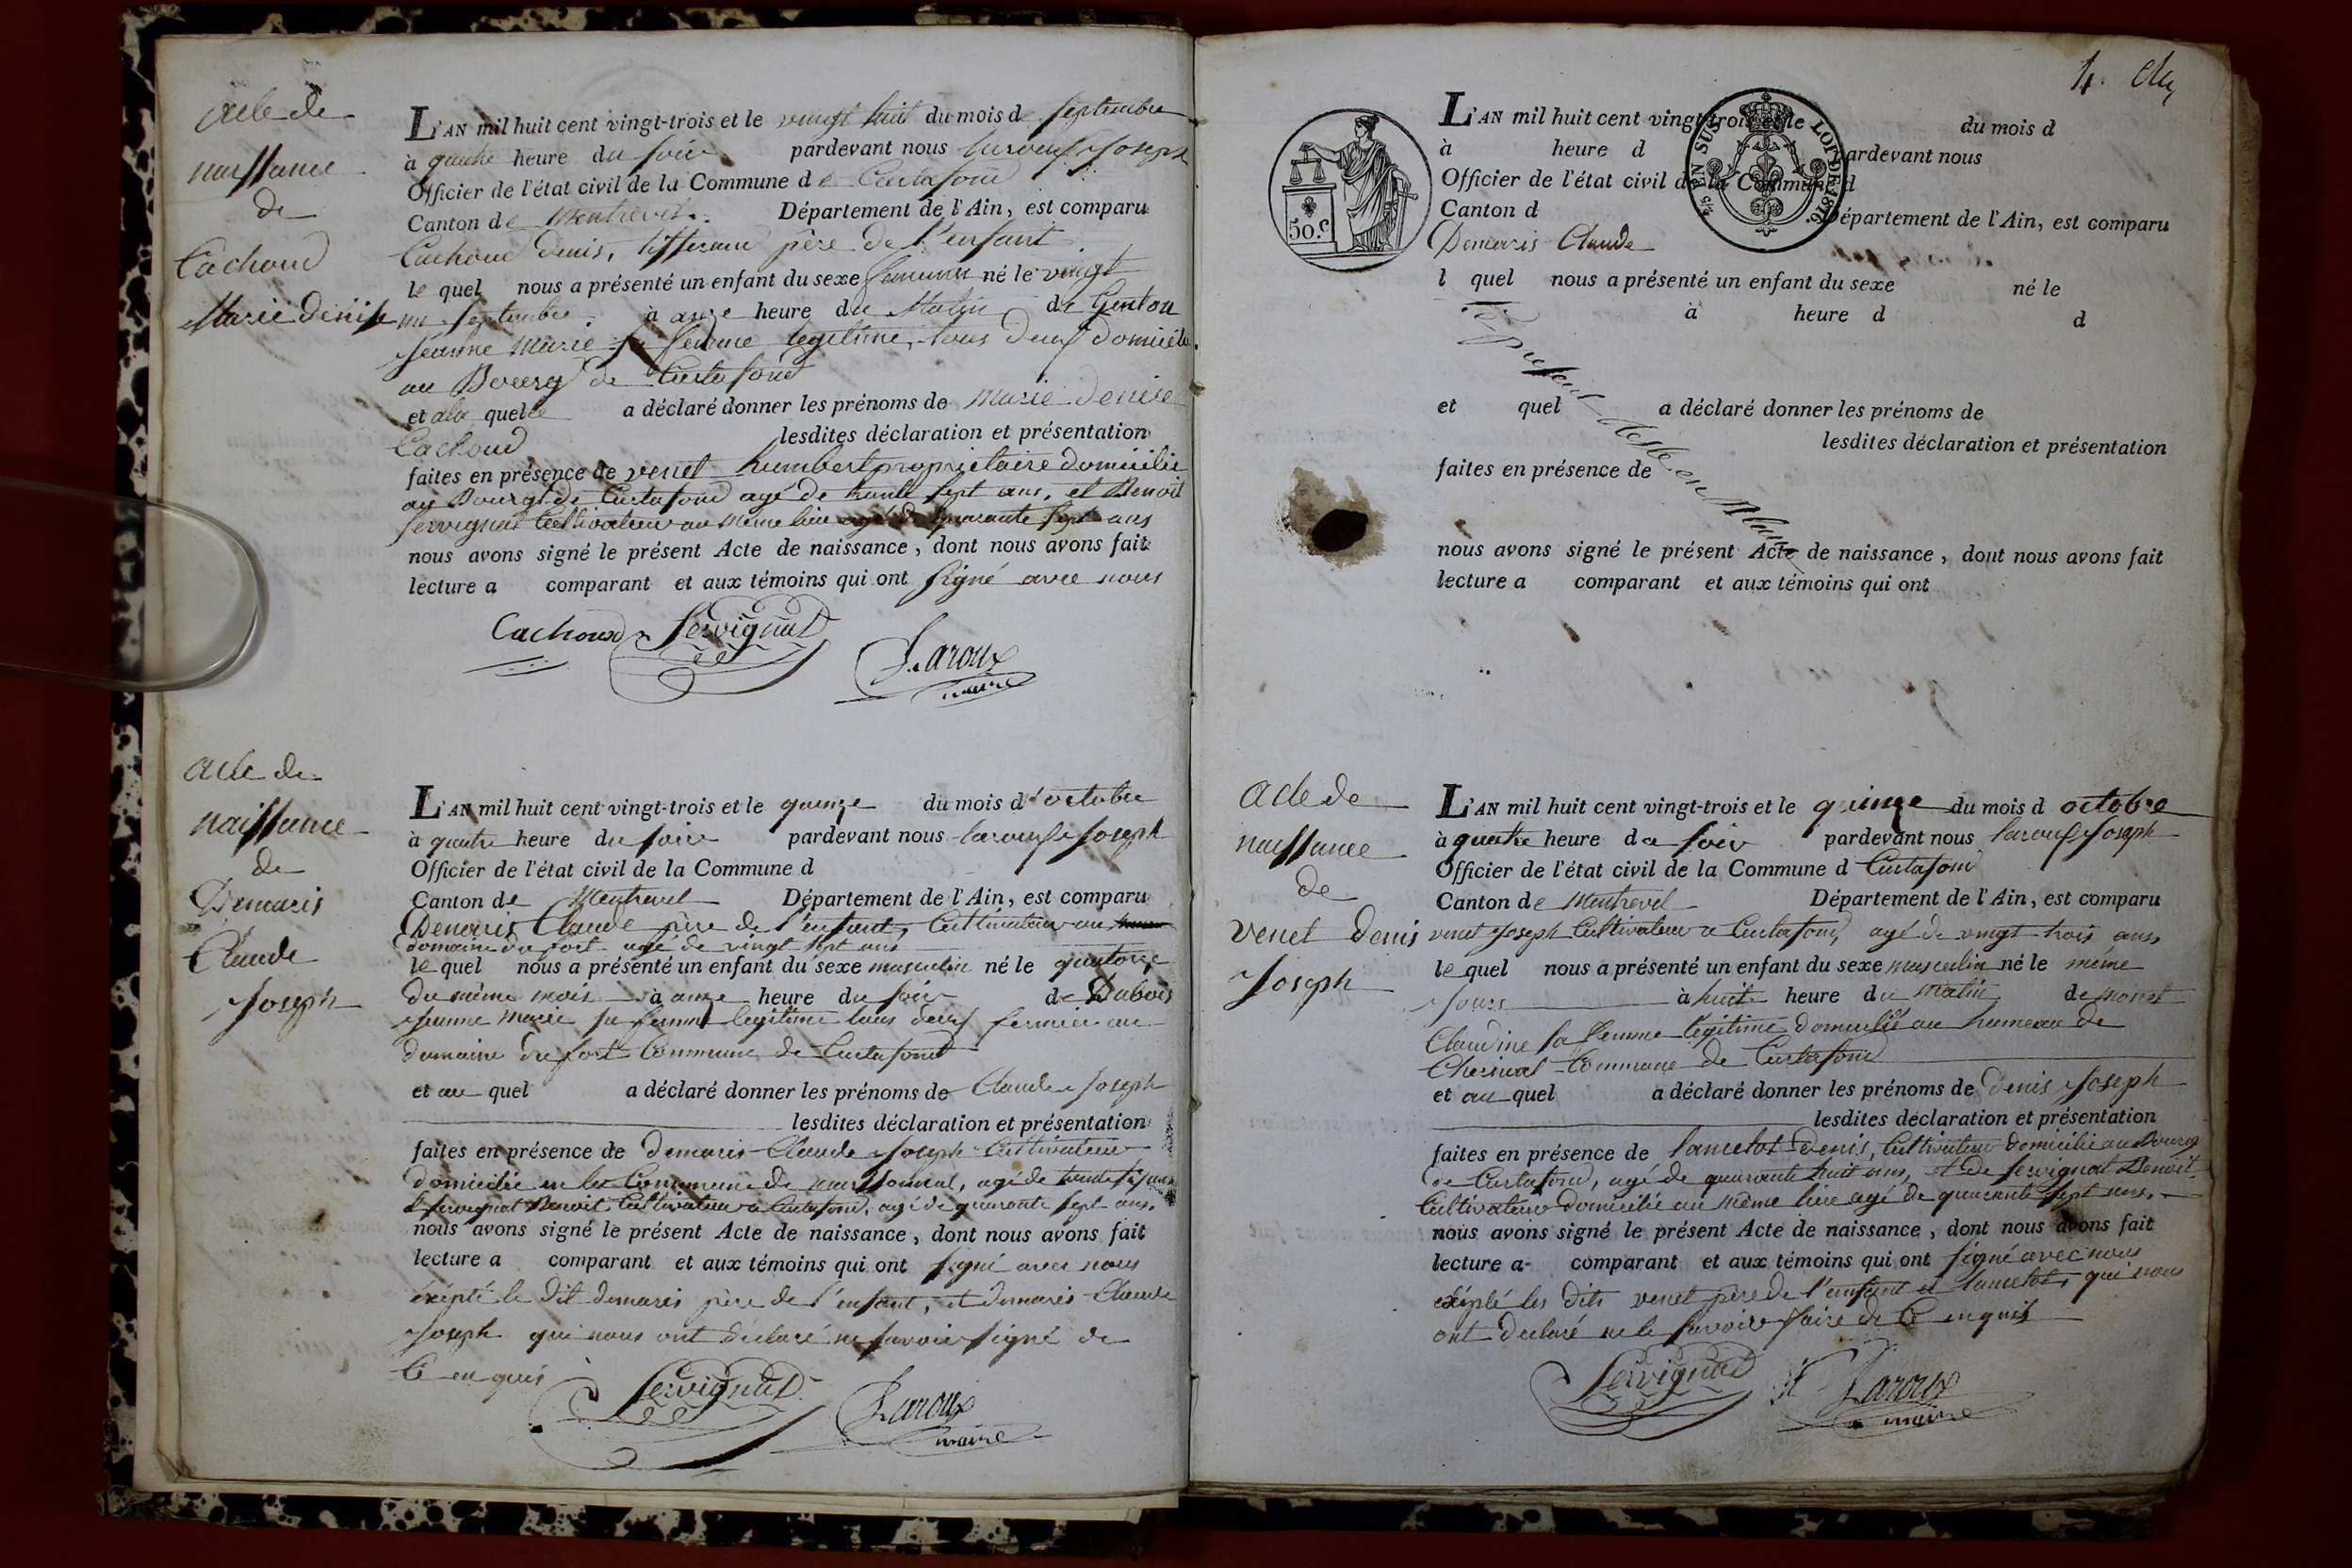 acte de
naissance
de
Cachoud
Marie Denise
L'AN mil huit cent vingt-trois et le vingt huit du mois de septembre
à quatre heure du soir pardevant nous Laroux Joseph
Officier de l'état civil de la Commune de Curtafond
Canton de Montrevel Département de l'Ain, est comparu
Cachoud Denis, tisserand père de l'enfant
le quel nous a présenté un enfant du sexe feminin né le vingt
un septembre à onze heure du Matin de Genton
Jeanne Marie sa femme legitime, tous deux domicilié
au Bourg de Curtafond
et a la quelle a déclaré donner les prénoms de Marie Denise
Cachoud lesdites déclaration et présentation
faites en présence de venet humbert propriétaire domicilié
au Bourg de Curtafond agé de trente sept ans, et Benoit
servignat Cultivateur au même lieu agé de quarante sept ans
nous avons signé le présent Acte de naissance, dont nous avons fait
lecture a comparant et aux témoins qui ont signé avec nous
Cachoud Servignat Laroux
maire
acte de
naissance
de
Demaris
Claude
Joseph
L'AN mil huit cent vingt-trois et le quinze du mois d'octobre
à quatre heure du soir pardevant nous laroux Joseph
Officier de l'état civil de la Commune d
Canton de Montrevel Département de l'Ain, est comparu
Demaris Claude père de l'enfant, Cultivateur au
domaine du fort agé de vingt sept ans
le quel nous a présenté un enfant du sexe masculin né le quatorze
du même mois à onze heure du soir de Dubois
Jeanne Marie sa femme legitime tous deux fermier au
domaine du fort Commune de Curtafond
et au quel a déclaré donner les prénoms de Claude Joseph
lesdites déclaration et présentation
faites en présence de Demaris Claude Joseph Cultivateur
domicilié en la Commune de, agé de trente
et servignat Benoit Cultivateur a Curtafond, agé de quarante sept ans.
nous avons signé le présent Acte de naissance, dont nous avons fait
lecture a comparant et aux témoins qui ont signé avec nous
éxépté le dit demaris père de l'enfant, et demaris Claude
Joseph qui nous ont déclaré ne savoir signé de
Ce enquis
Servignat Laroux
maire
4.
L'AN mil huit cent vingt-trois et le du mois d
à heure d pardevant nous
Officier de l'état civil de la Commune d
Canton d Département de l'Ain, est comparu
Demaris Claude
50.c
EN SUS LOI DE 1816.
l quel nous a présenté un enfant du sexe né le
à heure d d
le présent reste en blanc
et quel a déclaré donner les prénoms de
lesdites déclaration et présentation
faites en présence de
nous avons signé le présent Acte de naissance, dont nous avons fait
lecture a comparant et aux témoins qui ont
acte de
naissance
de
venet Denis
Joseph
L'AN mil huit cent vingt-trois et le quinze du mois d octobre
à quatre heure du soir pardevant nous laroux Joseph
Officier de l'état civil de la Commune d Curtafond
Canton de Montrevel Département de l'Ain, est comparu
venet Joseph Cultivateur a Curtafond, agé de vingt trois ans
le quel nous a présenté un enfant du sexe masculin né le même
Jours à huit heure du matin de monet
Claudine sa femme légitime domicilié au hameau de
Chernval Commune de Curtafond
et au quel a déclaré donner les prénoms de Denis Joseph
lesdites déclaration et présentation
faites en présence de lancelot Denis, Cultivateur domicilié au Bourg
de Curtafond, agé de quarante huit ans, et de servignat Benoit
Cultivateur domicilié au même lieu agé de quarante sept ans.
nous avons signé le présent Acte de naissance, dont nous avons fait
lecture a comparant et aux témoins qui ont signé avec nous
éxépté les dits venet père de l'enfant et lancelot, qui nous
ont declaré ne le savoir faire de Ce enquis
Servignat Laroux
maire